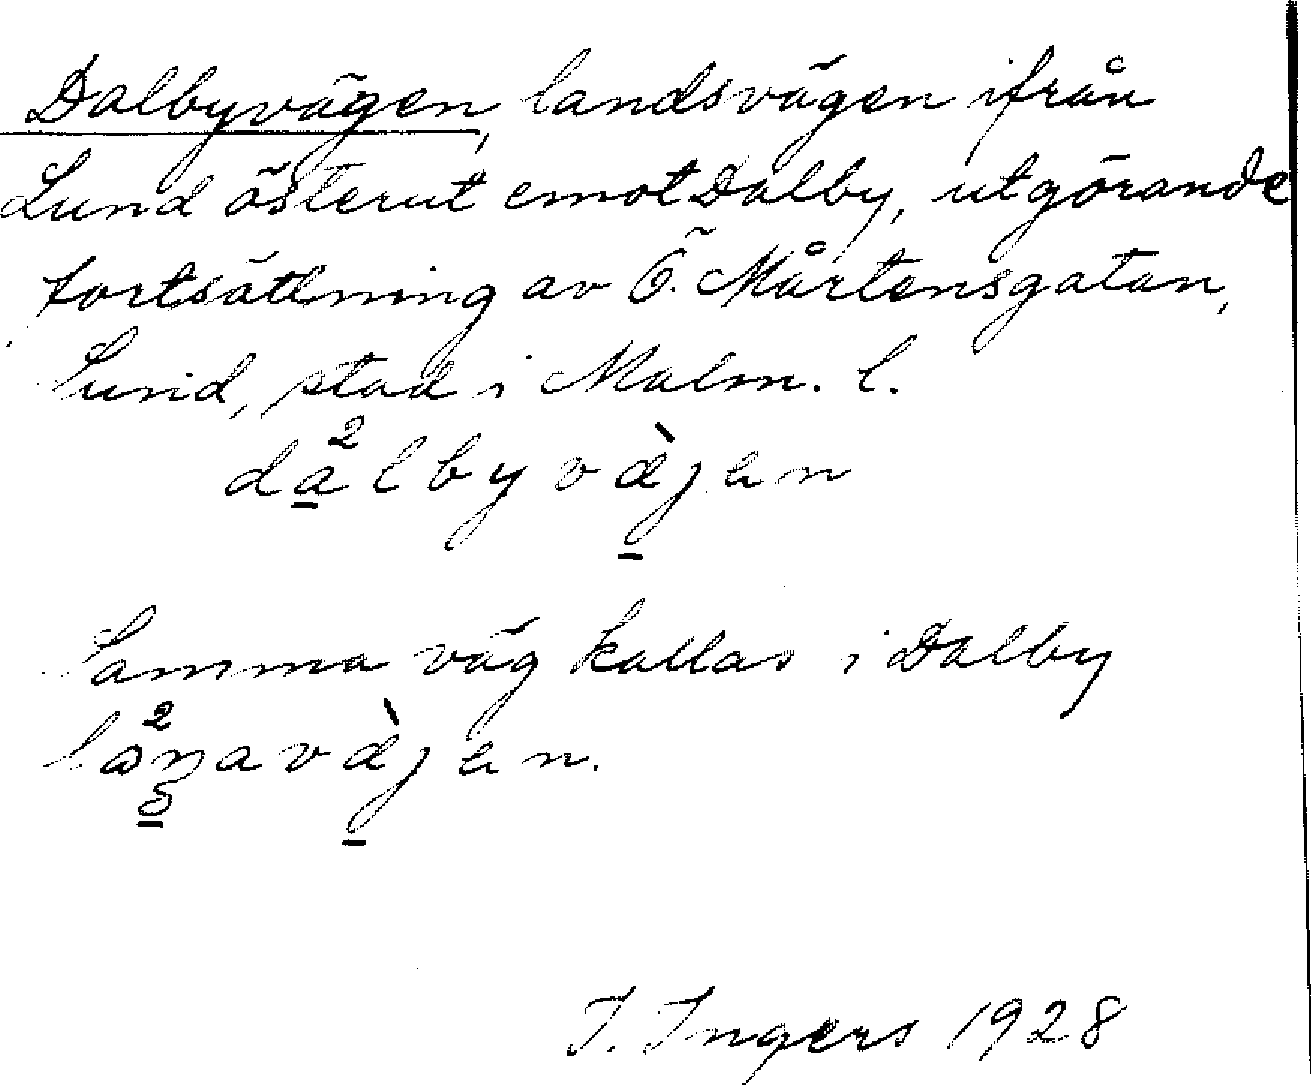 Dalbyvägen, landsvägen ifrån
Lund österut emot Dalby, utgörande
fortsättning av Ö. Mårtensgatan,
Lund, stad i Malm. l.
da²lbyvæ̀jen
Samma väg kallas i Dalby
lå²ŋavæ̀jen.
I. Ingers 1928